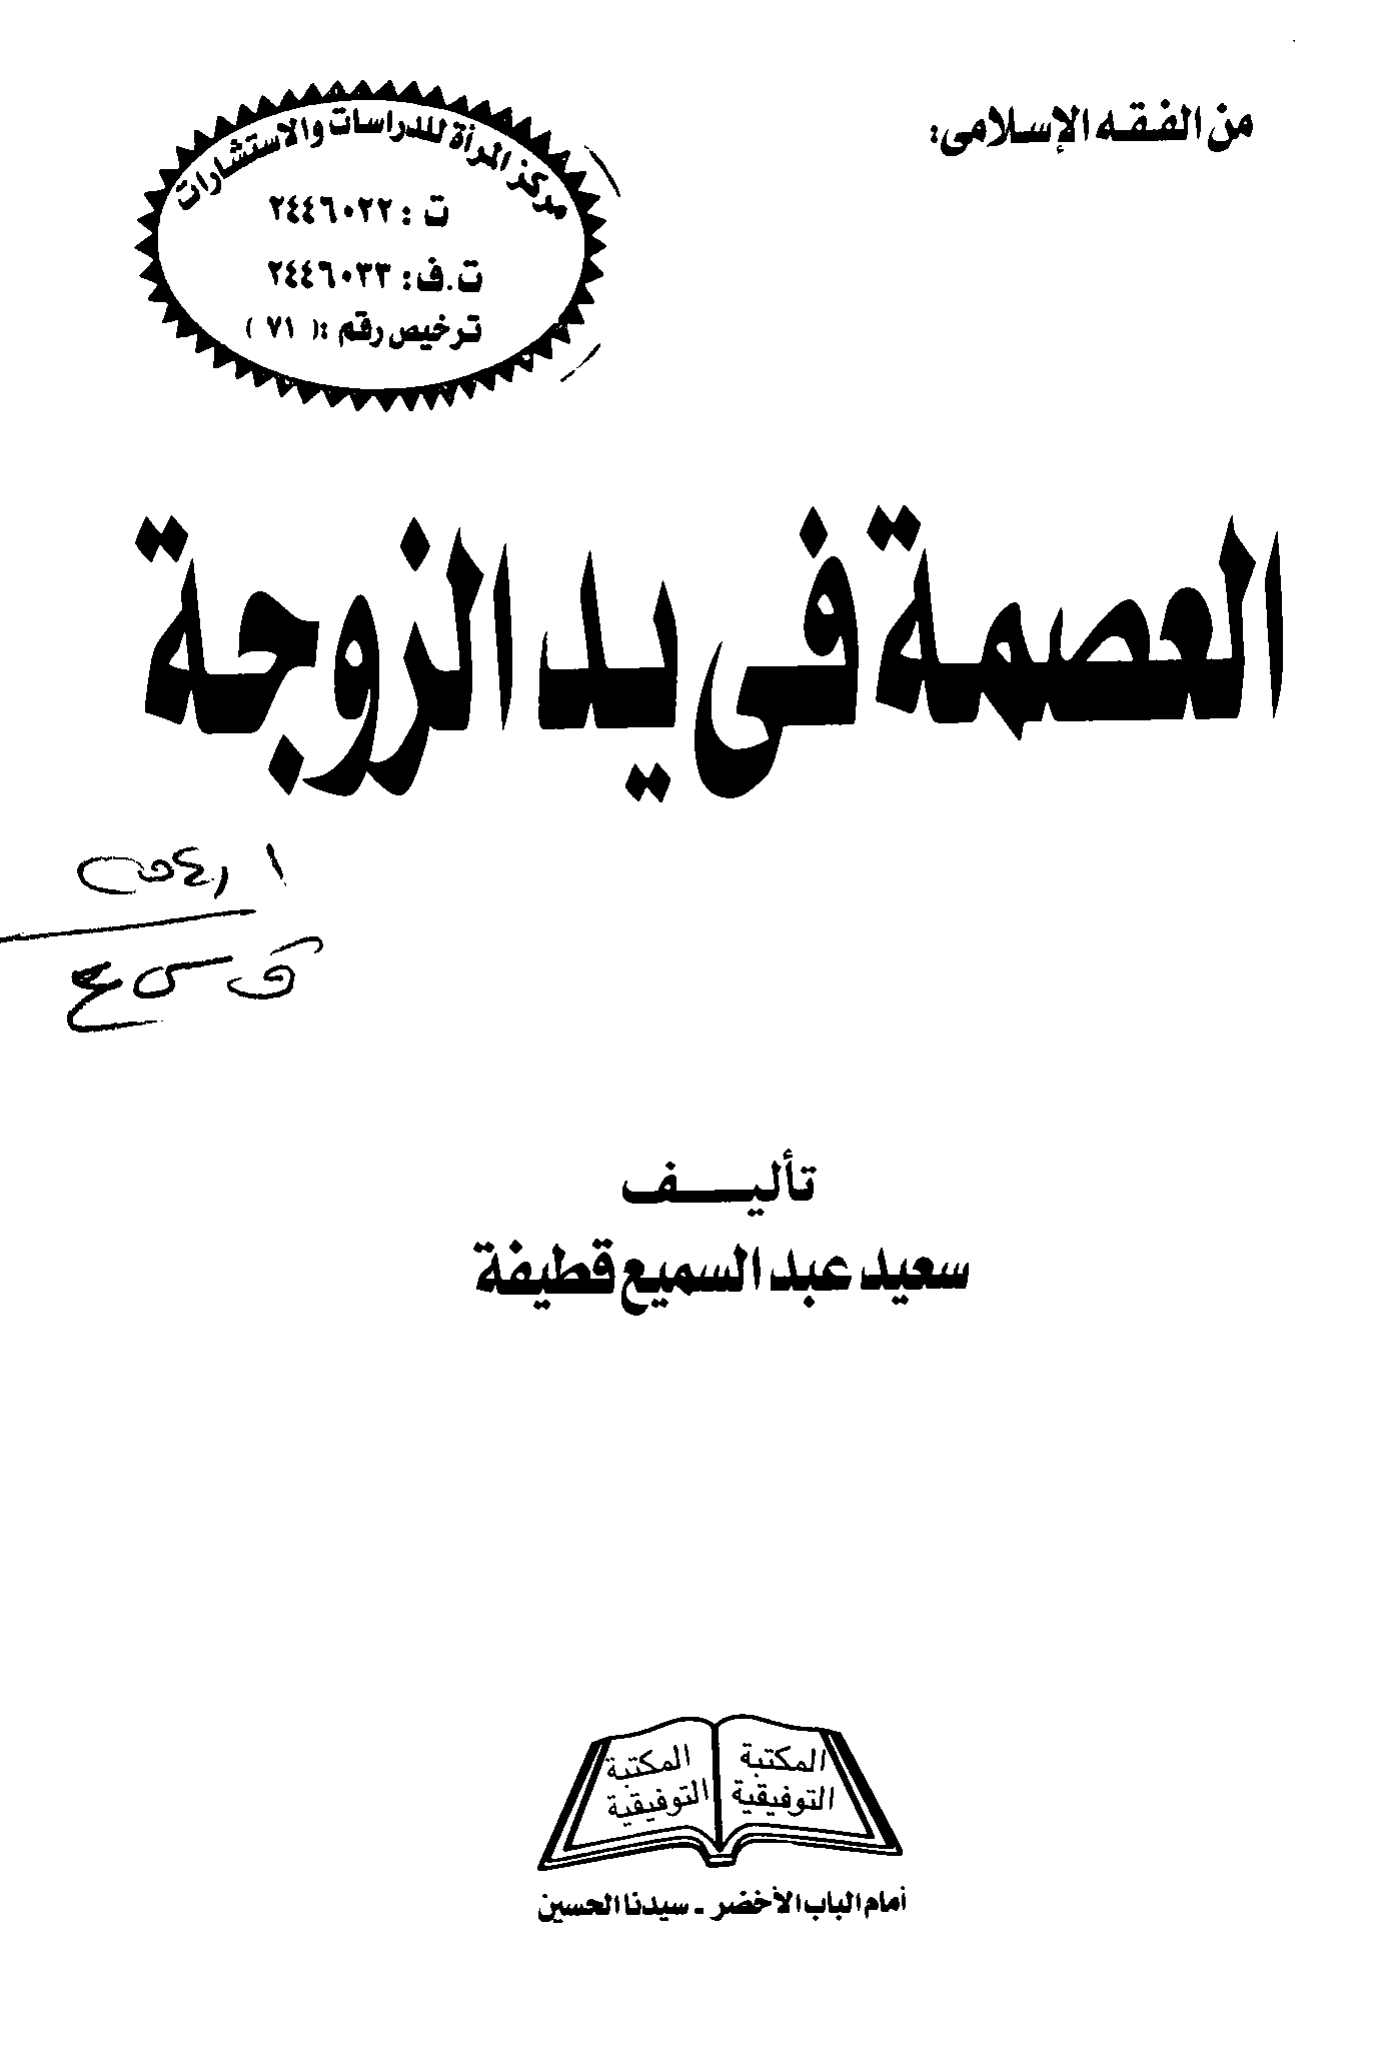 من الفقه الإسلامى:
مركز المرأة للدراسات والاستشارات
ت : ٢٤٤٦٠٢٢
ت.ف: ٢٤٤٦٠٣٣
ترخيص رقم :( ٧١ )
العصمة فى يد الزوجة
تأليف
سعيد عبد السميع قطيفة
المكتبة التوفيقية
المكتبة التوفيقية
أمام الباب الأخضر ـ سيدنا الحسين